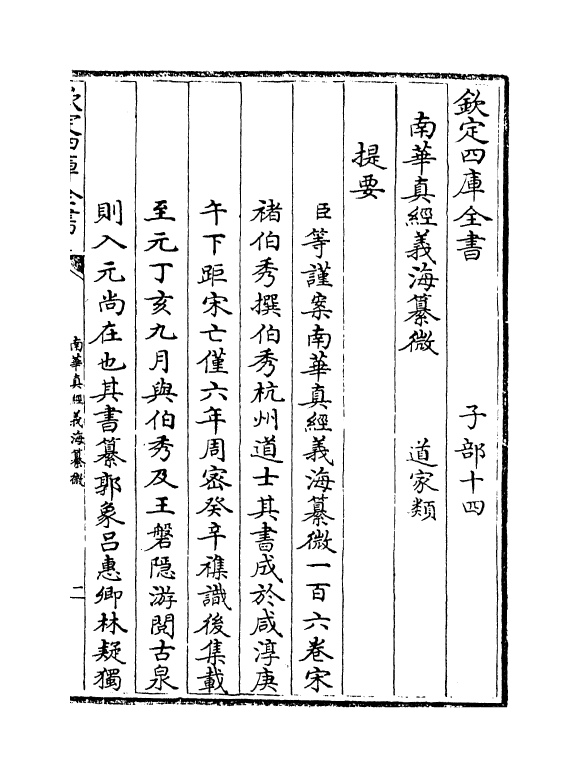 欽定四庫全書　子部十四
南華真經義海纂微　道家類
提要
臣等謹案南華真經義海纂微一百六卷宋
禇伯秀撰伯秀杭州道士其書成於咸淳庚
午下距宋亡僅六年周密癸辛襍識後集載
至元丁亥九月與伯秀及王磐隠游閲古泉
則入元尚在也其書纂郭象吕惠卿林疑獨
欽定四庫全書
南華真經義海纂微
二